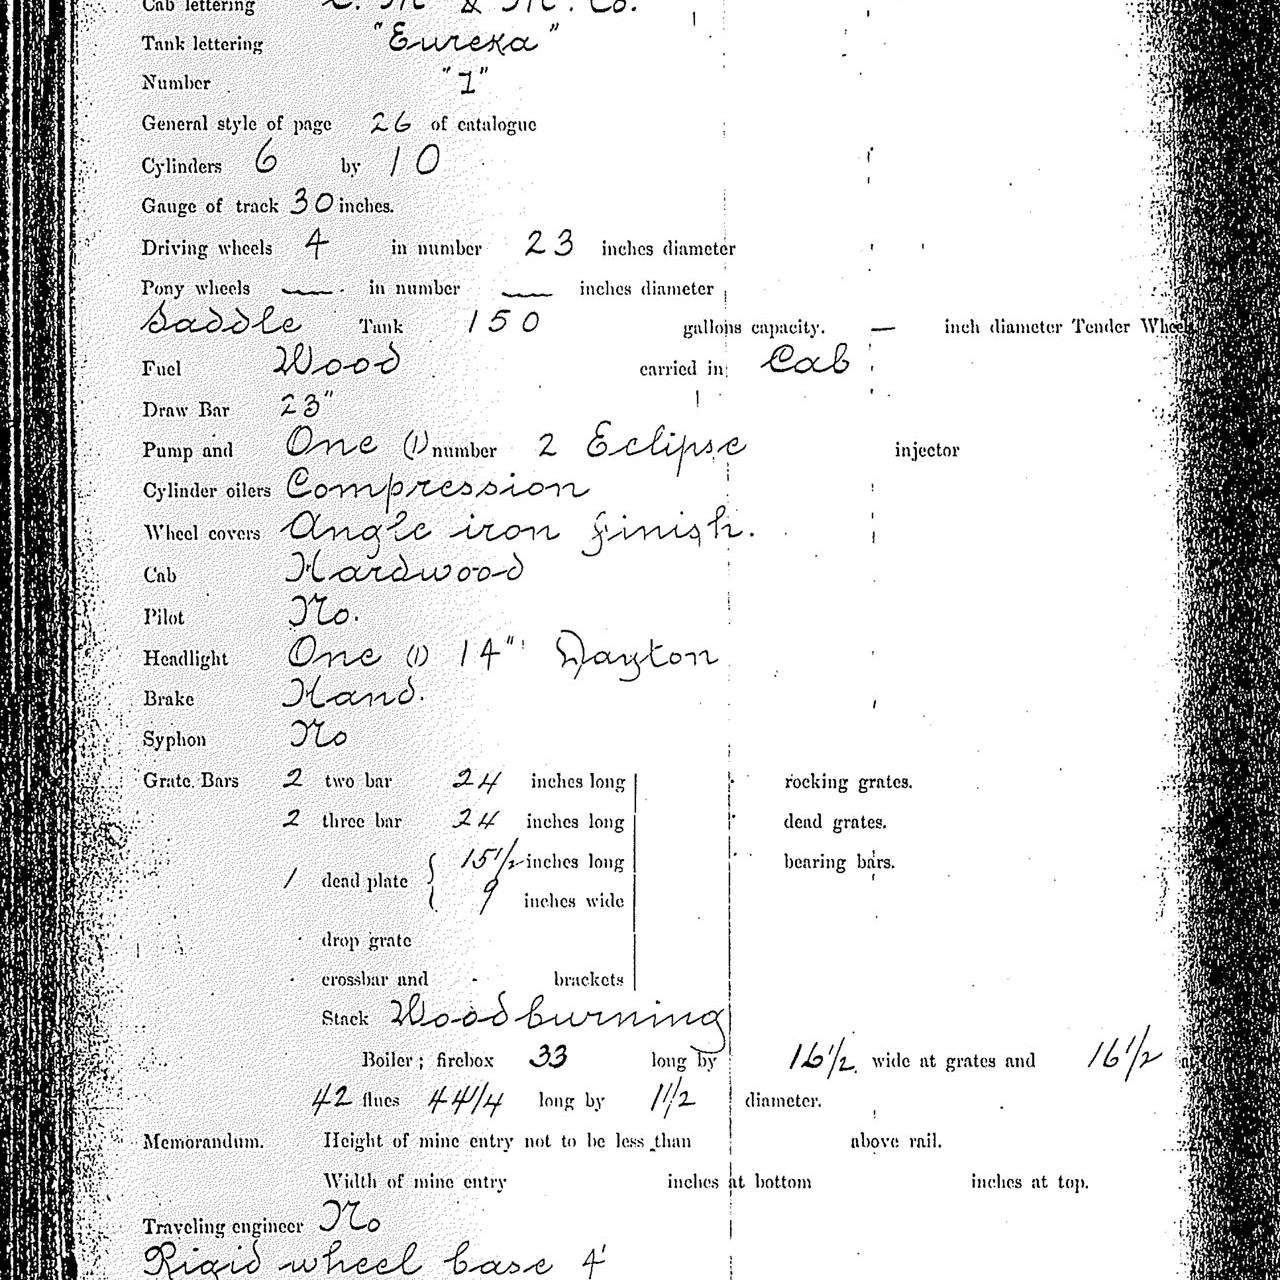 Cab lettering & M. Co.
Tank lettering "Eureka"
Number "1"
General style of page 26 of catalogue
Cylinders 6 by 10
Gauge of track 30 inches.
Driving wheels 4 in number 23 inches diameter
Pony wheels — in number — inches diameter
Saddle Tank 150 gallons capacity. — inch diameter Tender Wheel
Fuel Wood carried in Cab
Draw Bar 23"
Pump and One (1) number 2 Eclipse injector
Cylinder oilers Compression
Wheel covers Angle iron finish.
Cab Hardwood
Pilot No.
Headlight One (1) 14" Dayton
Brake Hand.
Syphon No
Grate Bars 2 two bar 24 inches long rocking grates.
2 three bar 24 inches long dead grates.
1 dead plate { 15 1/2 inches long bearing bars.
9 inches wide
drop grate
crossbar and brackets
Stack Woodburning
Boiler; firebox 33 long by 16 1/2 wide at grates and 16 1/2
42 flues 44 1/4 long by 1 1/2 diameter.
Memorandum. Height of mine entry not to be less than above rail.
Width of mine entry inches at bottom inches at top.
Traveling engineer No
Rigid wheel base 4'